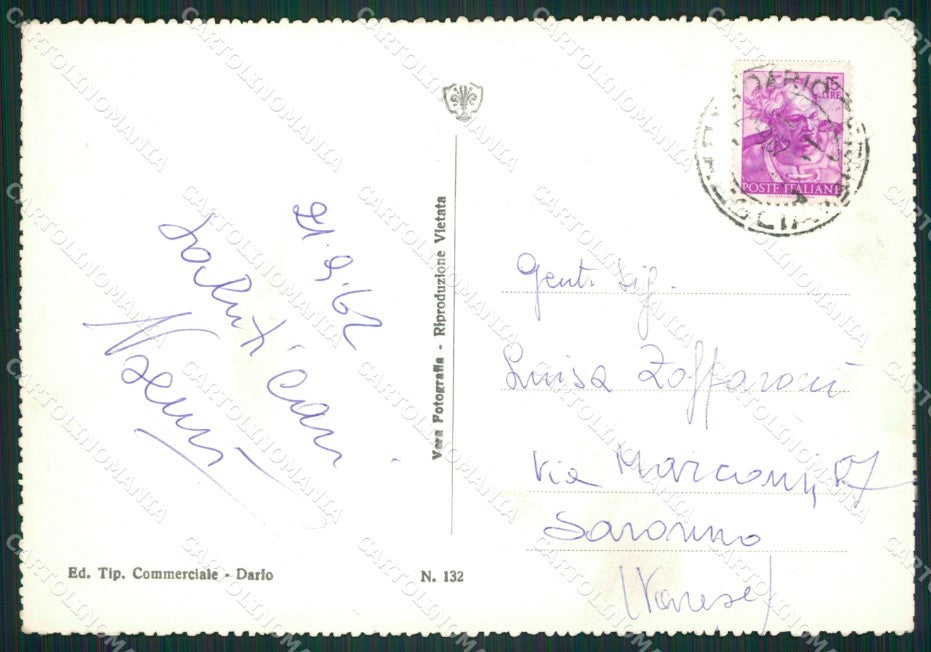 21.9.62
Saluti cari
Noemi
Vera Fotografia - Riproduzione Vietata
Ed. Tip. Commerciale - Darfo
N. 132
15
LIRE
POSTE ITALIANE
Gent. Sig.
Luisa Zaffaroni
Via Marconi, 87
Saronno
(Varese)
CARTOLINOMANIA